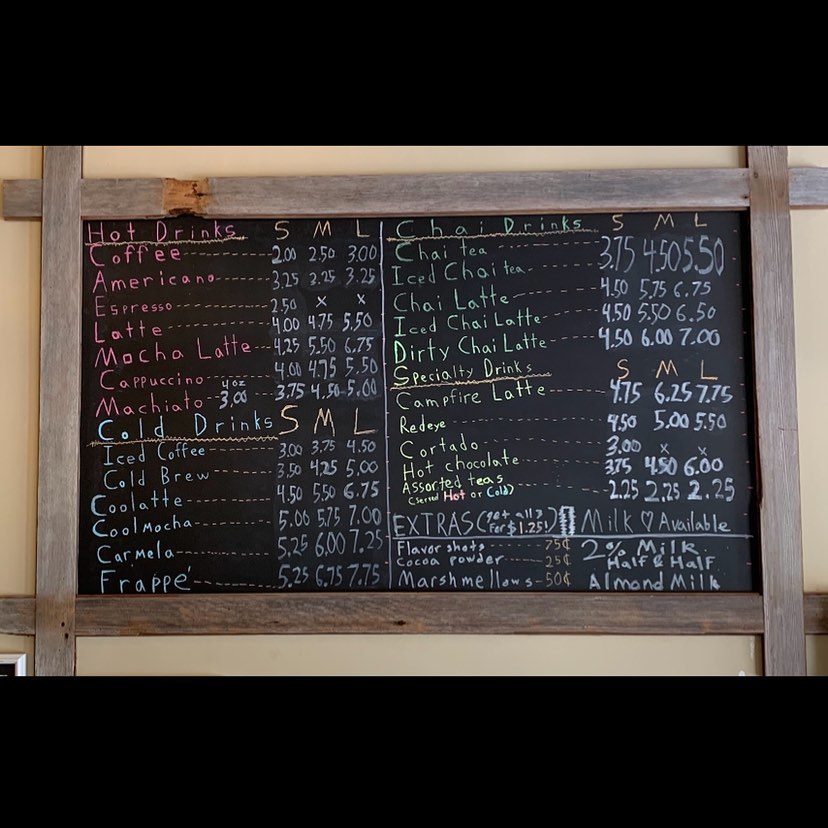 Hot Drinks S M L
Coffee 2.00 2.50 3.00
Americano 3.25 3.25 3.25
Espresso 2.50 x x
Latte 4.00 4.75 5.50
Mocha Latte 4.25 5.50 6.75
Cappuccino 4.00 4.75 5.50
Machiato 4oz 3.00 3.75 4.50 5.00
Cold Drinks S M L
Iced Coffee 3.00 3.75 4.50
Cold Brew 3.50 4.25 5.00
Coolatte 4.50 5.50 6.75
Coolmocha 5.00 5.75 7.00
Carmela 5.25 6.00 7.25
Frappé 5.25 6.75 7.75
Chai Drinks S M L
Chai tea 3.75 4.50 5.50
Iced Chai tea 4.50 5.75 6.75
Chai Latte 4.50 5.50 6.50
Iced Chai Latte 4.50 6.00 7.00
Dirty Chai Latte
Specialty Drinks S M L
Campfire Latte 4.75 6.25 7.75
Redeye 4.50 5.00 5.50
Cortado 3.00 x x
Hot chocolate 3.75 4.50 6.00
Assorted teas 2.25 2.25 2.25
(served Hot or Cold)
EXTRAS (get all 3 for $1.25!)
Flavor shots 75¢
Cocoa powder 25¢
Marshmellows 50¢
Milk ♡ Available
2% Milk
Half & Half
Almond Milk